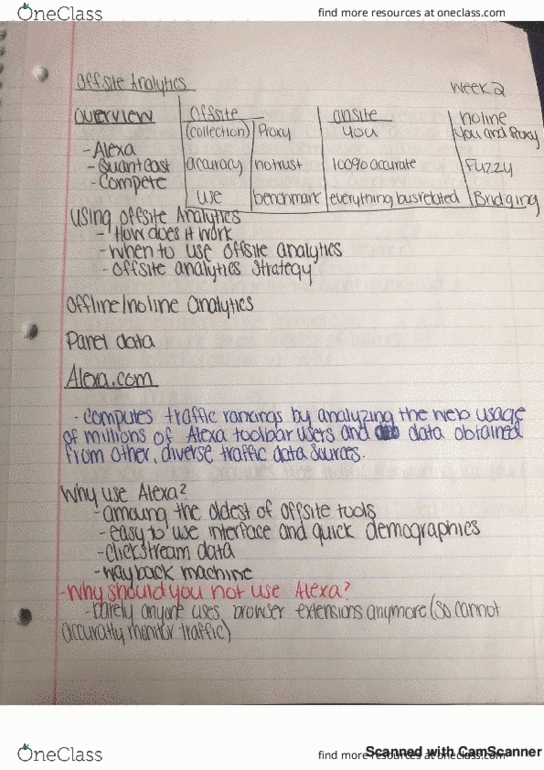 OneClass
find more resources at oneclass.com
Offsite Analytics
week 2
overview
offsite onsite noline
(collection) Proxy you you and Proxy
- Alexa
- Quantcast accuracy no trust 100% accurate Fuzzy
- Compete
use benchmark everything bus related Bridging
Using offsite Analytics
- How does it work
- when to use offsite analytics
- offsite analytics strategy
Offline/noline analytics
Panel data
Alexa.com
- computes traffic rankings by analyzing the web usage
of millions of Alexa toolbar users and data obtained
from other, diverse traffic data sources.
Why use Alexa?
- amoung the oldest of offsite tools
- easy to use interface and quick demographics
- clickstream data
- wayback machine
- Why should you not use Alexa?
- barely anyone uses browser extensions anymore (so cannot
accuratly monitor traffic)
OneClass
find more resources at oneclass.com
Scanned with CamScanner